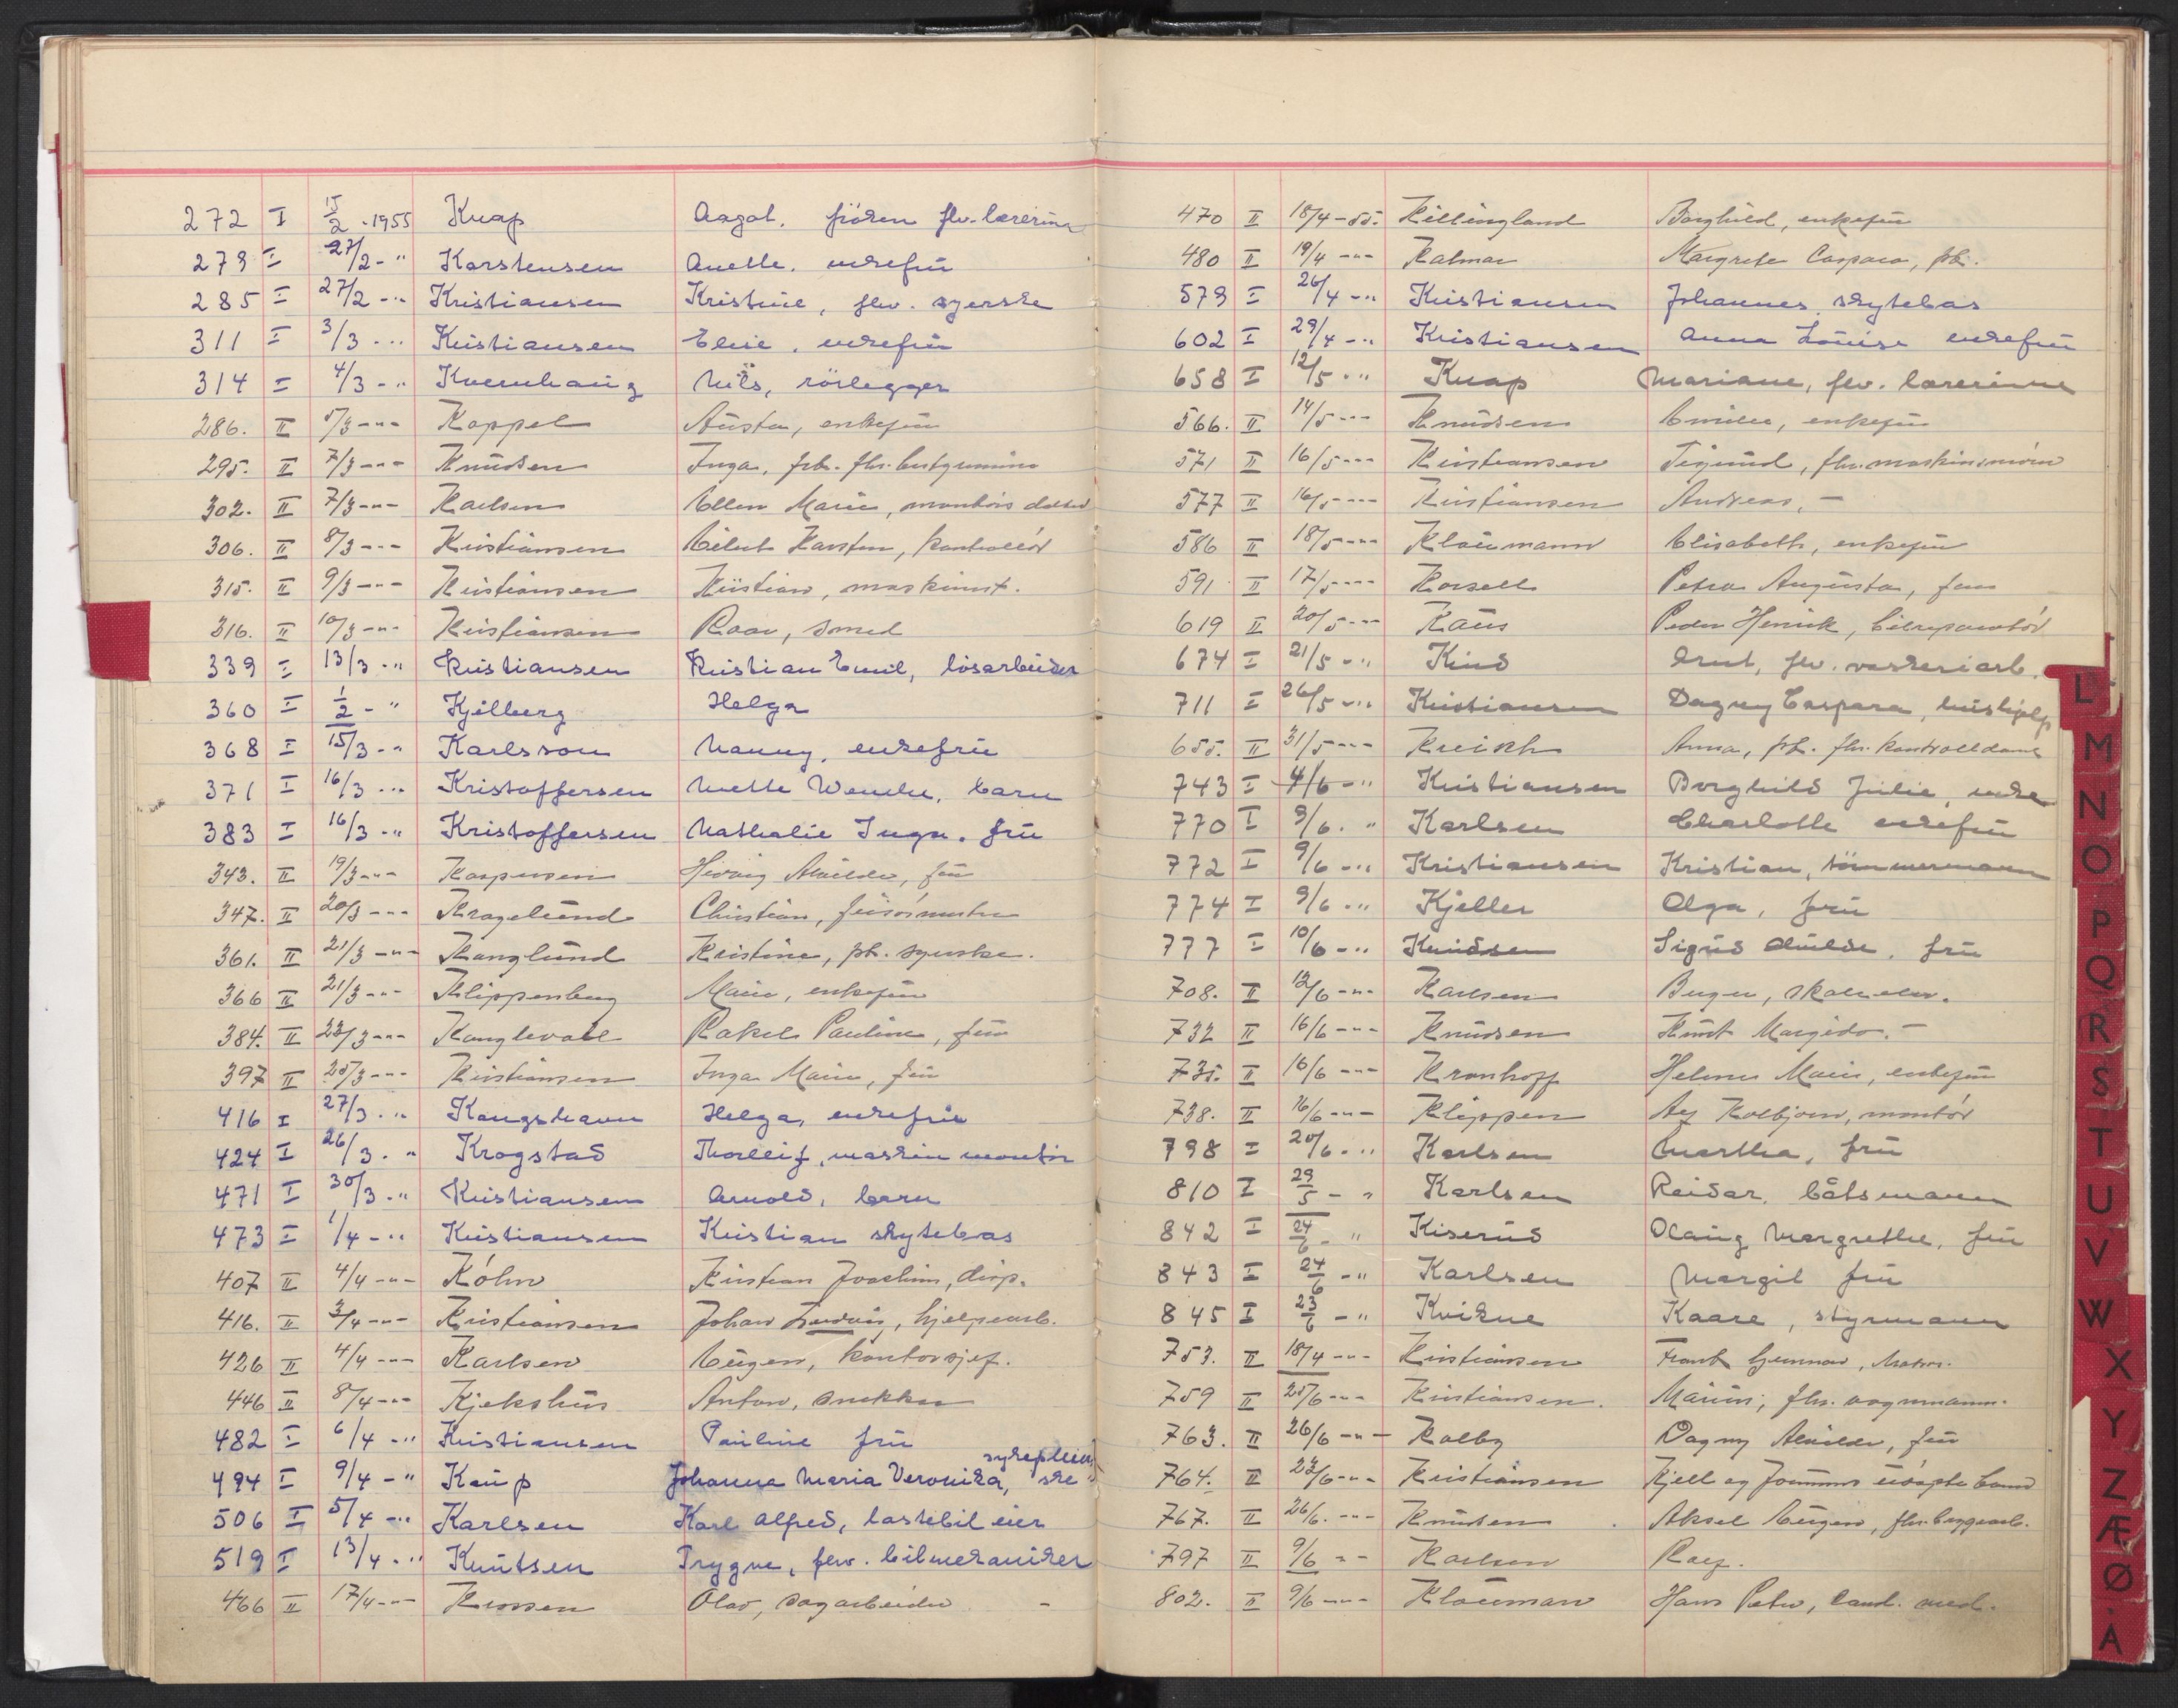 272 I 15/2 - 1955 Knap Aagot, frøken flv. lærerinne
279 I 27/2 - " Karstensen Anette, enkefru
285 I 27/2 - " Kristiansen Kristine, flv. syerske
311 I 3/3 - " Kristiansen Elise, enkefru
314 I 4/3 - " Kvernhaug Nils, rörlegger
286. II 5/3 - " - Koppel enkefru
295. II 7/3 - " - Knudsen Inga, frk. fhv.
302. II 7/3 - " - Karlsen Ellen Marie, montörs datter
306. II 8/3 - " - Kristiansen Karsten, kontrollör
315. II 9/3 - " - Kristiansen Kristian, maskinist.
316. II 10/3 - " - Kristiansen Roar, smed
339 I 13/3 - " Kristiansen Kristian Emil, lösarbeider
360 I 1/2 - " Kjelberg Helga
368 I 15/3 - " Karlsson Nanny, enkefru
371 I 16/3 - " Kristoffersen Mette Wenche, barn
383 I 16/3 - " Kristoffersen Nathalie Inga. fru
343. II 19/3 - " - Kaspersen Hedvig Alvilde, fru
347. II 20/3 - " - Kragelund Christian,
361. II 21/3 - " - Kanglund Kristine, frk. syerske.
366 II 21/3 - " - Klippenberg Marie, enkefru
384. II 23/3 - " - Kanglevoll Rakel Pauline, fru
397 II 25/3 - " - Kristiansen Inga Marie, fru
416 I 27/3 - " Kaugshavn Helga, enkefru
424 I 26/3 - " Krogstad Thorleif, maskin montör
471 I 30/3 - " Kristiansen Arnold, barn
473 I 1/4 - " Kristiansen Kristian skytebas
407 II 4/4 - " - Köhn Kristian Joachim, disp.
416. II 3/4 - " - Kristiansen Johan Ludvig, hjelpearb.
426 II 4/4 - " - Karlsen Eugen, kontorsjef.
446 II 8/4 - " - Kjekshus Anton, snekker
482 I 6/4 - " Kristiansen Pauline fru
494 I 9/4 - " Kaup Johanna Maria Veronika, sykepleier
506 I 5/4 - " Karlsen Karl Alfred, lastebil eier
519 I 13/4 - " Knutsen Trygve, flv. bilmekaniker
466 II 17/4 - " - Olav, sagarbeider -
470 II 18/4 - 55. Killingland Borghild, enkefru
480 II 19/4 - " - Kalmar Margrete Caspara, frk.
579 I 26/4 - " Kristiansen Johannes, skytebas
602 I 29/4 - " Kristiansen Anna Louise enkefru
658 I 12/5 - " Knap Mariane, flv. lærerinne
566. II 14/5 - " - Knudsen Emilie, enkefru
571 II 16/5 - " - Kristiansen fhv.
577 II 16/5 - " - Kristiansen Andreas, -
586 II 18/5 - " - Klaumann Elisabeth, enkefru
591 II 17/5 - " - Korsell Petra Augusta, fru
619 II 20/5 - " - Kaus Peder Henrik, bilreparatör
674 I 21/5 - " Kind Arnt, flv. vaskeriarb.
711 I 26/5 - " Kristiansen Dagny Caspara, hushjelp
655. II 31/5 - " - Anna, frk. fhv. kontrolldame
743 I 4/6 - " Kristiansen Borghild Julie, enke
770 I 9/6 - " Karlsen Charlotte enkefru
772 I 9/6 - " Kristiansen Kristian, tömmermann
774 I 9/6 - " Kjeller Olga, fru
777 I 10/6 - " Knudsen Sigrid Alvilde, fru
708. II 12/6 - " - Karlsen Birger, skoleelev.
732 II 16/6 - " - Knudsen Knut Margido. -
735. II 16/6 - " - Kronhoff Helene Marie, enkefru
738. II 16/6 - " - Klippen Kolbjørn, montör
798 I 20/6 - " Karlsen Martha, fru
810 I 29/5 - " Karlsen Reidar, båtsmann
842 I 24/6 - " Kiserud Olaug Margrethe, fru
843 I 24/6 - " Karlsen Margit fru
845 I 23/6 - " Kvikne Kaare, styrmann
753. II 18/4 - " - Kristiansen Frank
759 II 25/6 - " - Kristiansen. Marius, fhv. vognmann.
763. II 26/6 - " - Kolby Dagny Alvilde, fru
764. II 23/6 - " - Kristiansen Kjell og Jorunns udöpte barn
767. II 26/6. - " - Knutsen Aksel Eugen, fhv. byggearb.
797 II 9/6 - " - Karlsen Rolf.
802. II 9/6 - " - Klouman Hans Peter, cand. med.
L
M
N
O
P
Q
R
S
T
U
V
W
X
Y
Z
Æ
Ø
Å